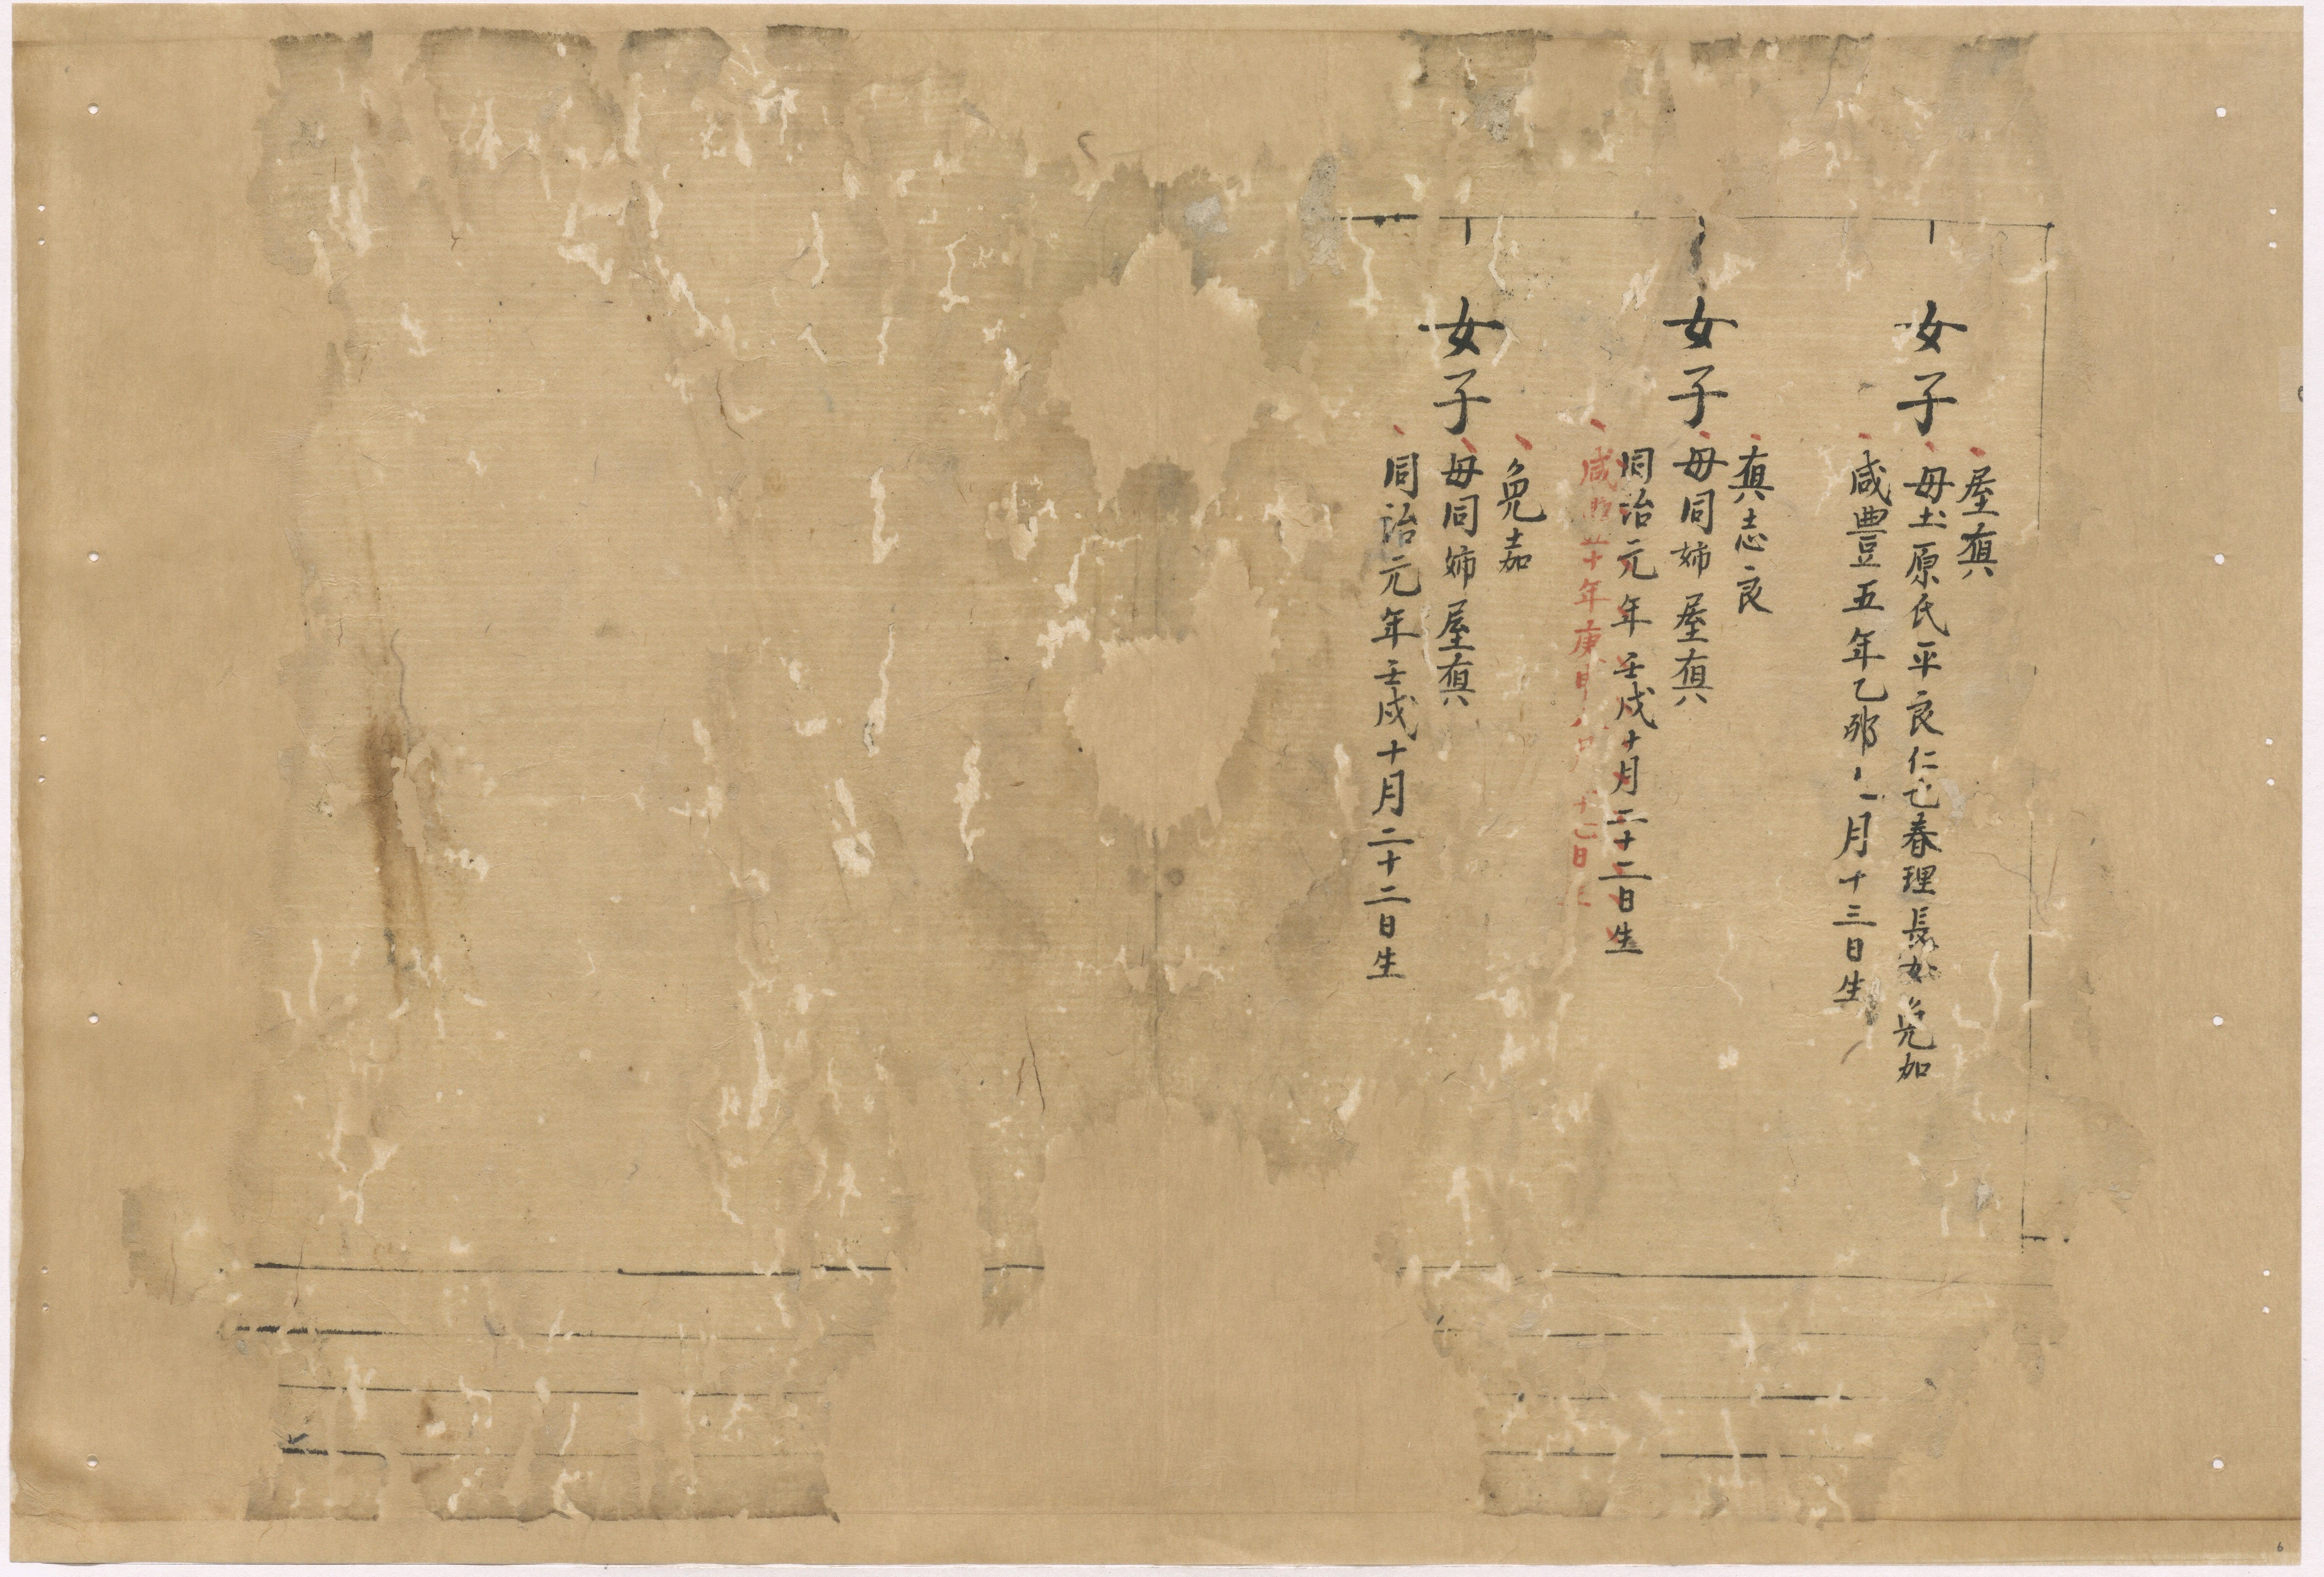 女子
屋眞
母土原氏平良仁也春理長女兔加
咸豐五年乙卯 一月十三日生
女子
眞志良
母同姉屋眞
同治元年壬戌十月二十二日生
咸 十年庚申八 十七日
女子
兔嘉
母同姉屋眞
同治元年壬戌十月二十二日生
6